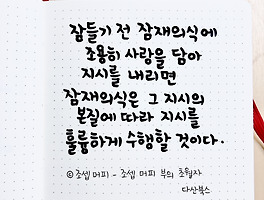 잠들기 전 잠재의식에
조용히 사랑을 담아
지시를 내리면
잠재의식은 그 지시의
본질에 따라 지시를
훌륭하게 수행할 것이다.
© 조셉 머피 - 조셉 머피 부의 초월자
다산북스